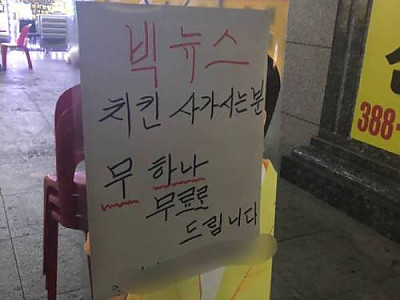 빅뉴스
치킨 사가시는분
무 하나
무료로
드립니다
388-